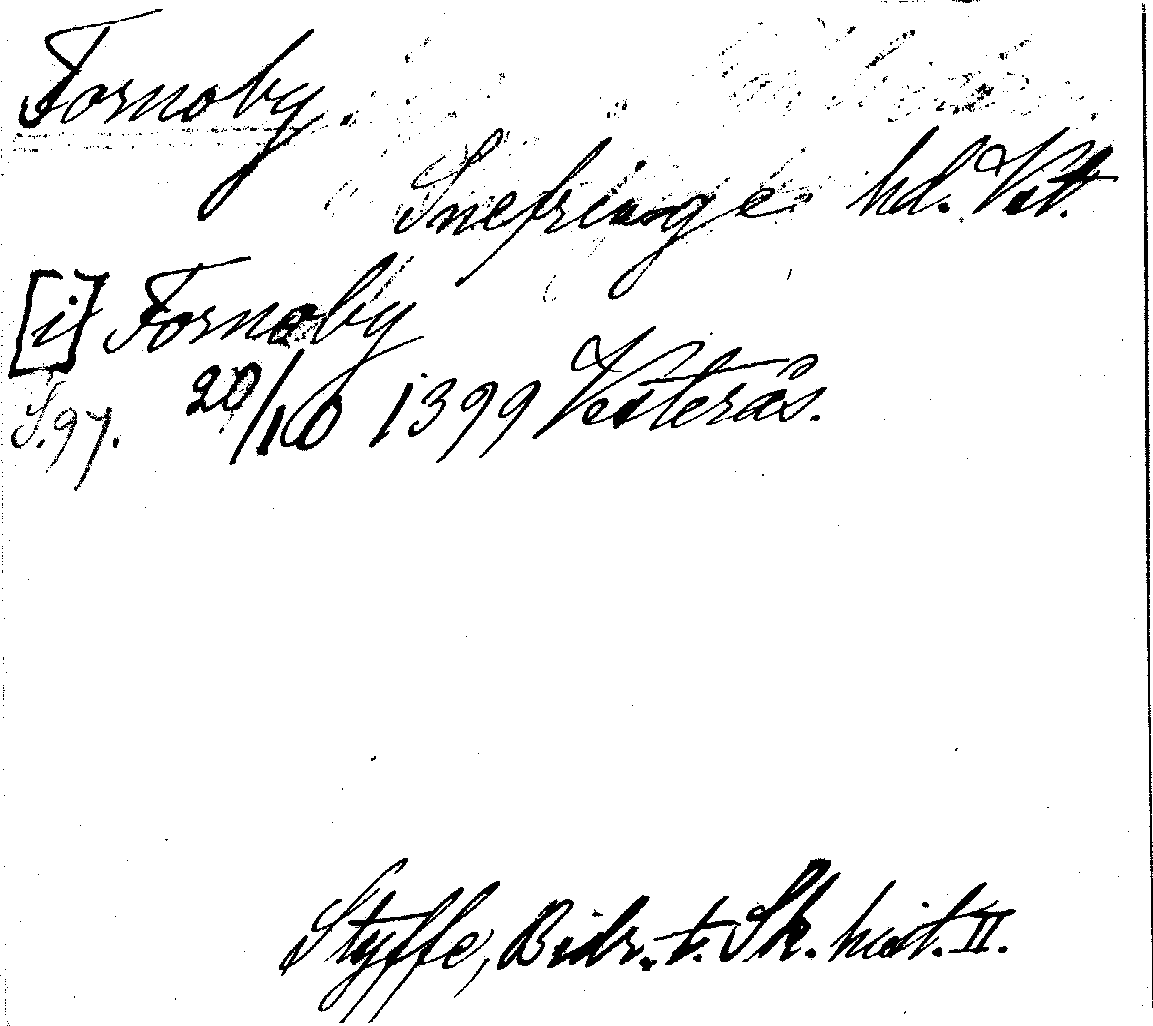 Fornoby.
Snefringe hd. Vst.
[i] Fornoby
S.97. 20/10 1399 Västerås.
Styffe, Bidr. t. Sk. hist. II.